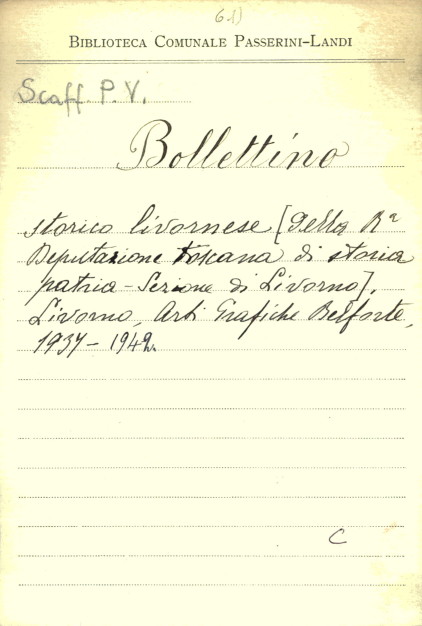 6.1)
BIBLIOTECA COMUNALE PASSERINI-LANDI
Scaff. P. V.
Bollettino
storico livornese [della Rª
Deputazione toscana di storia
patria - Sezione di Livorno],
Livorno, Arti Grafiche Belforte,
1937 - 1942.
C